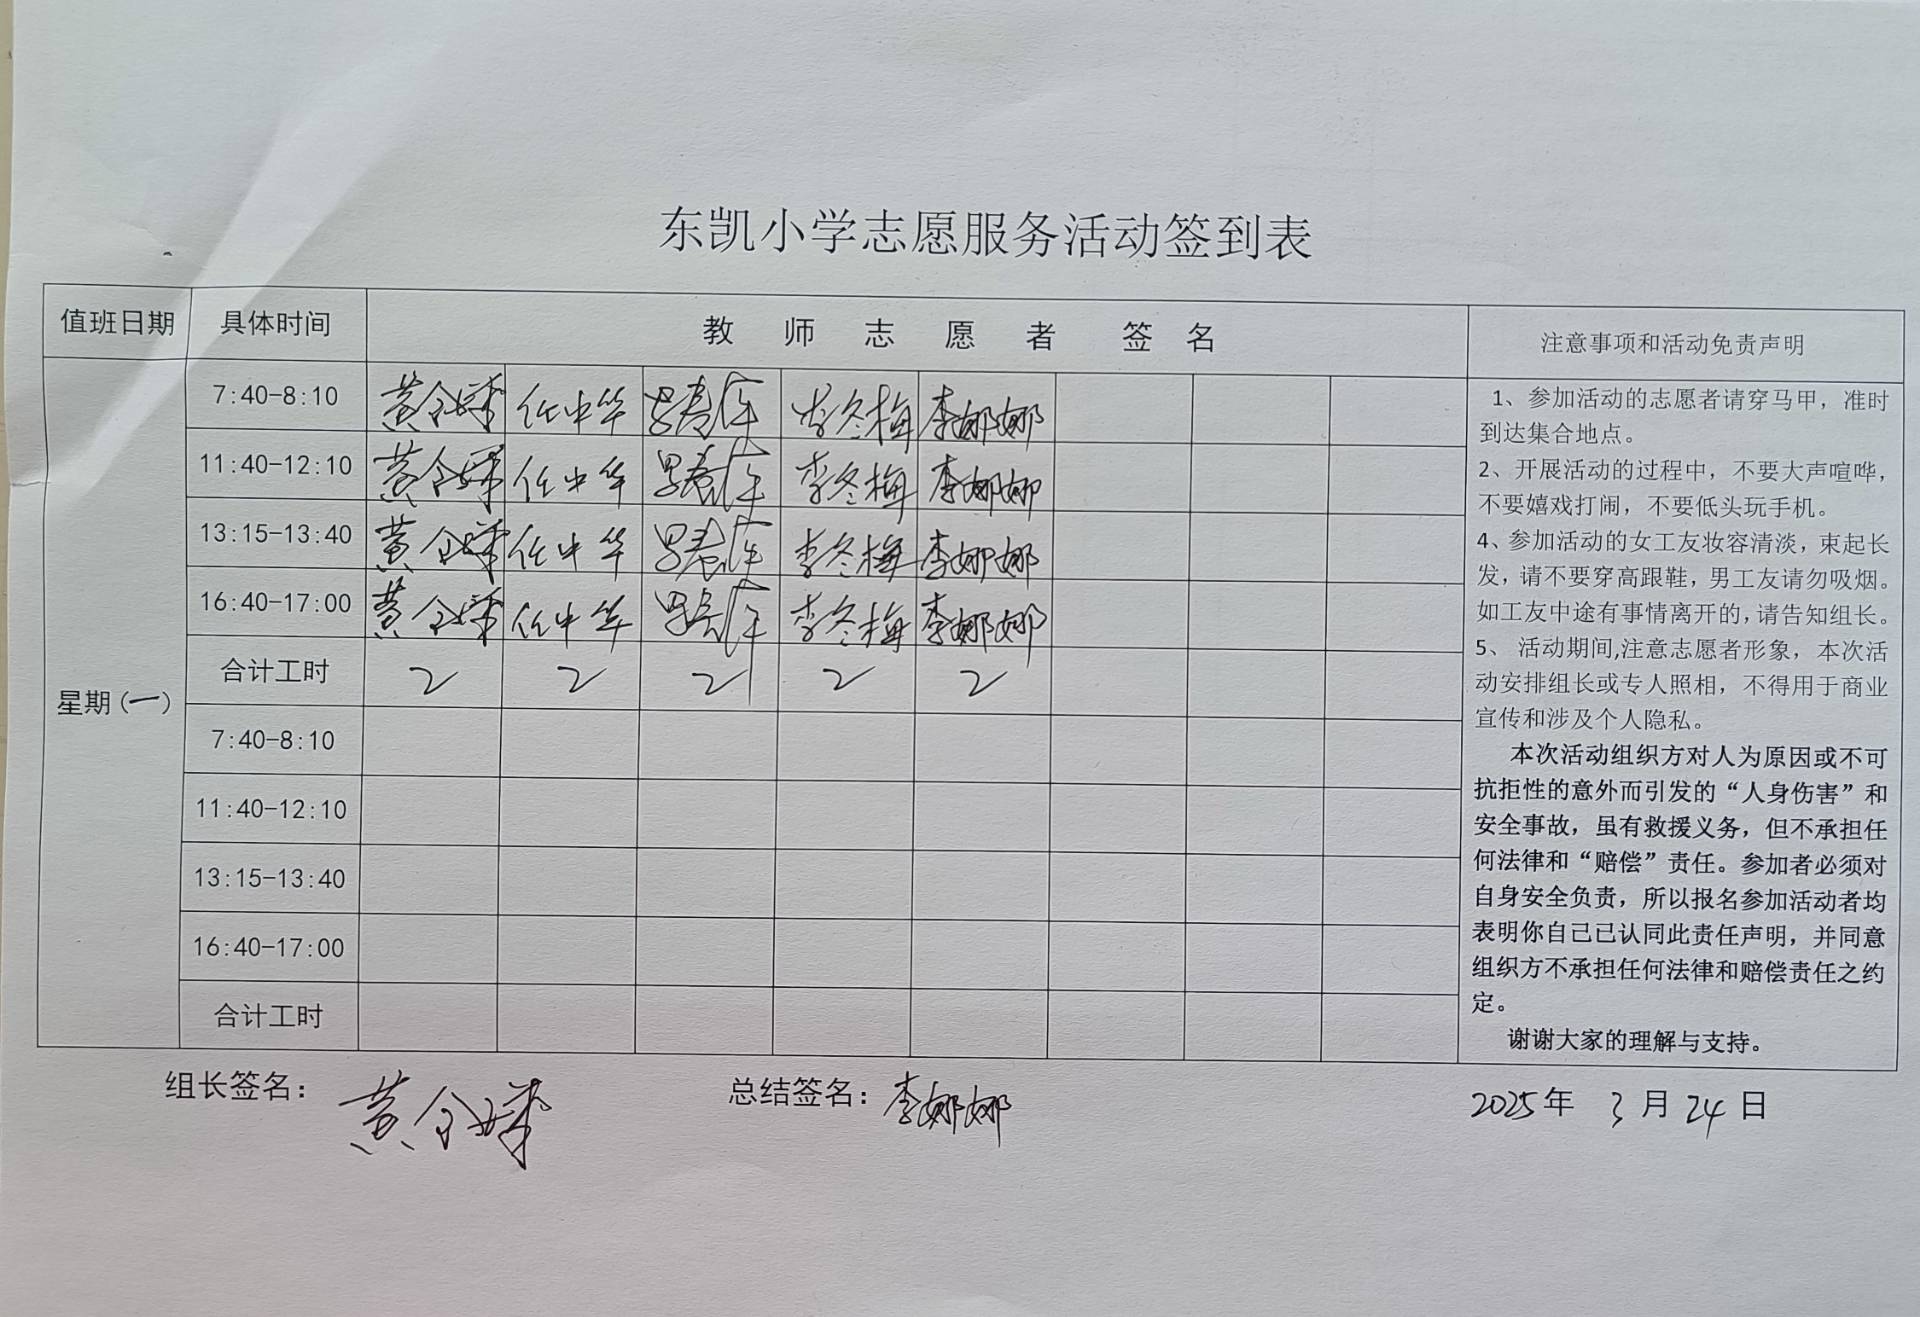 东凯小学志愿服务活动签到表
值班日期 具体时间 教师志愿者签名 注意事项和活动免责声明
星期(一)
7:40-8:10 黄 任中华 李冬梅 李娜娜
11:40-12:10 黄 任中华 李冬梅 李娜娜
13:15-13:40 黄 任中华 李冬梅 李娜娜
16:40-17:00 黄 任中华 李冬梅 李娜娜
合计工时 2 2 2 2 2
7:40-8:10
11:40-12:10
13:15-13:40
16:40-17:00
合计工时
1、参加活动的志愿者请穿马甲，准时
到达集合地点。
2、开展活动的过程中，不要大声喧哗，
不要嬉戏打闹，不要低头玩手机。
4、参加活动的女工友妆容清淡，束起长
发，请不要穿高跟鞋，男工友请勿吸烟。
如工友中途有事情离开的，请告知组长。
5、 活动期间,注意志愿者形象，本次活
动安排组长或专人照相，不得用于商业
宣传和涉及个人隐私。
本次活动组织方对人为原因或不可
抗拒性的意外而引发的“人身伤害”和
安全事故，虽有救援义务，但不承担任
何法律和“赔偿”责任。参加者必须对
自身安全负责，所以报名参加活动者均
表明你自己已认同此责任声明，并同意
组织方不承担任何法律和赔偿责任之约
定。
谢谢大家的理解与支持。
组长签名： 黄 总结签名：李娜娜 2025年 3月24日